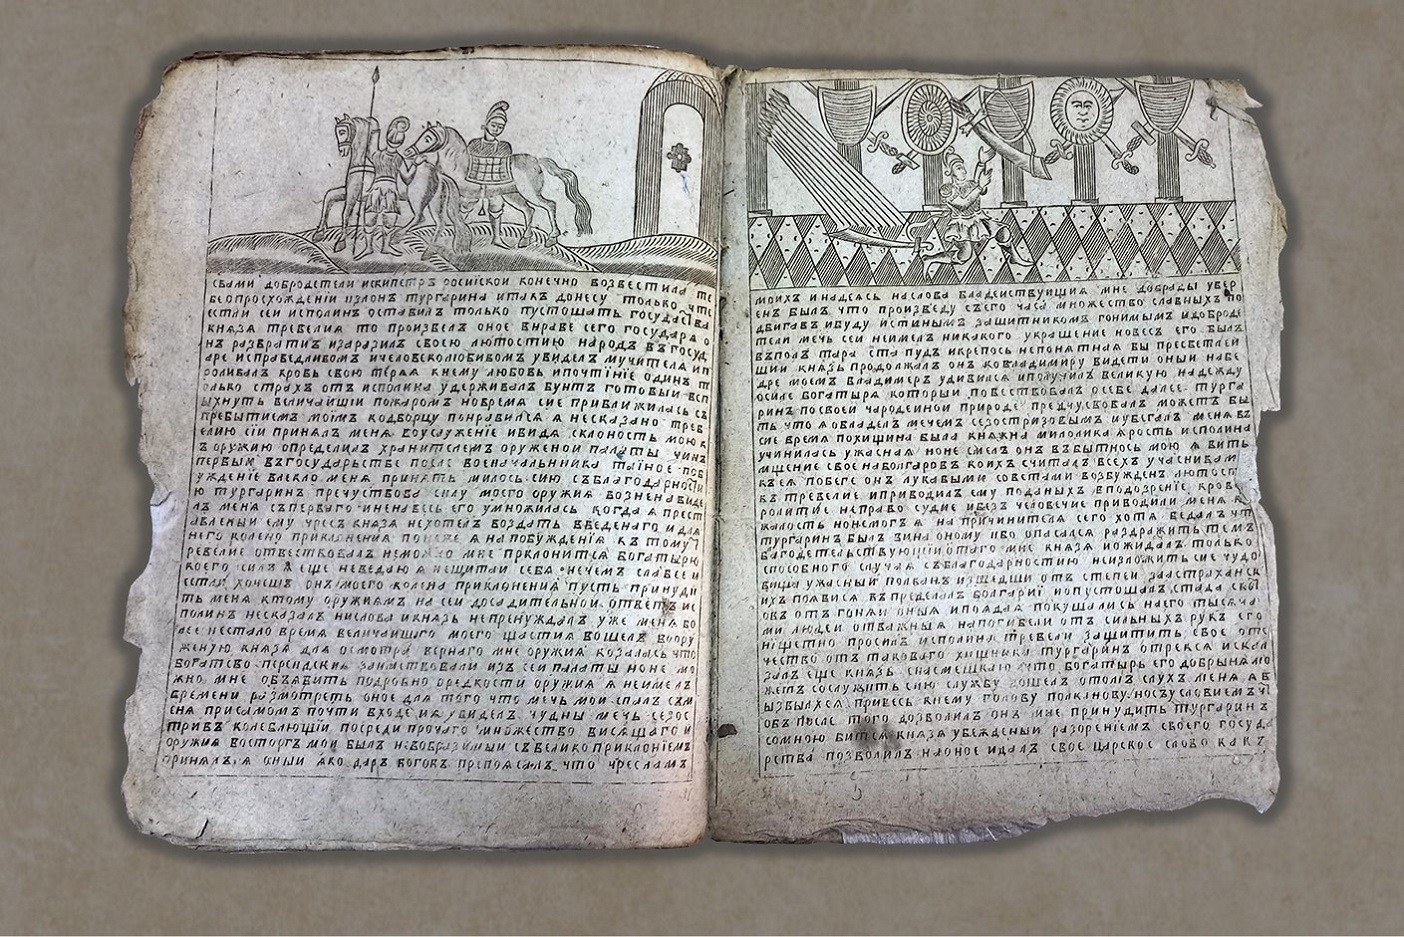 свами добродетели искипетръ росиїскои конечно возвестила те
бе опросхожденїи излонъ тургарина итакъ донесу только что
естли сеи исполинъ оставилъ только пустошать государства
князя тревелия то произвелъ оное внраве сего государя о
нъ развратилъ изаразилъ своею лютостию народъ въ госуд
аре исправедливомъ ичеловеколюбивомъ увидел мучителя ип
роливалъ кровь свою теряя кнему любовь ипочтїнїе одинъ т
олько страхъ отъ исполина удерживалъ бунтъ готовыи всп
ыхнуть величаишїи пожаромъ новремя сие приближилась съ
пребытиемъ моимъ кодворцу понравился я несказано трев
елию сїи принялъ меня воуслуженїе ивидя склоность мою к
ъ оружию определилъ хранителемъ оруженои палаты чинъ
первыи въ государьстве после военачальнника таїное поб
ужденїе влекло меня принять милось сию съблагодарностї
ю тургаринъ пречуствова силу моего оружия возненавиде
лъ меня съпервого иненавесь его умножилась когда я прест
авленыи ему чресъ князя нехотелъ воздать введенаго идля
него колено приклонения понеже я напобужденїя къ тому т
ревелие отвествовалъ неможно мне прклонится богатырю
коего силъ я еще неведаю я нещитаи себя нечемъ славее и
естли хочешъ онъ моего колена приклонения пусть принуди
ть меня ктому оружиямъ на сеи досадительнои ответъ ис
полинъ несказалъ нислова икнязь непренуждалъ уже меня бо
лее нестало время величаишаго моего щастия вошелъ воору
женую князя для осмотра вернаго мне оружия козалась что
богатсво персидския заимствовали изъ сеи палаты ноне мо
жно мне объявить подробно оредкости оружия я неимелъ
времени размотреть оное для того что мечь мои спалъ съм
еня присамомъ почти входе ия увиделъ чудны мечь сезос
тривъ колеблющїи посреди прочаго множество висящаго и
оружия восторгъ мои былъ невобразимыи съвелико приклонїемъ
принялъ я оныи яко даръ боговъ препоясалъ что чресламъ
моихъ инадеясь наслова владеиствующия мне добрады увер
енъ былъ что произведу съего часа множество славныхъ по
двигавъ ибуду истинымъ защитникомъ гонимымъ идоброде
тели мечь сеи неимелъ никакого украшение новесъ его былъ
въпол тара ста пудъ икрепось непонятная вы пресветлеи
шии князь продолжалъ онъ ковладимиру видети оныи набе
дре моемъ владимеръ удивился иполучилъ великую надежду
осиле богатыря которыи повествовалъ осебе далее турга
ринъ посвоеи чародеинои природе предчусвовалъ можетъ бы
ть что я обладелъ мечемъ сезостризовымъ иубегалъ меня въ
сие время похищина была княжна милолика ярость исполина
учинилась ужасная ноне смелъ онъ взбытнось мою я вить
мщение свое наболгаровъ коихъ считалъ всехъ учасникам
къея побеге онъ лукавыми советами возбужденъ лютост
въ тревелие иприводилъ ему поданыхъ вподозренїе крово
ролитие неправо судие ибезъ человечие приводили меня въ
жалость нонемогъ я на причинителя сего хотя ведалъ чт
тургаринъ былъ вина оному ибо опасался раздражить темъ
благодетельствующиї отаго мне князя иожидалъ только
способного случая съблагодарностию неизложить сие чудо
вища ужасныи полканъ изшедши отъ степеи заастрахансk
ихъ появися въ пределахъ болгариї иопустошалъ стада скої
овъ отъ гоняи оныя ипоядая покушались наего тысяча
ми людеи отважныя напогибели отъ сильныхъ рукъ его
нїщетно просилъ исполина тревели защитить свое оте
чество отъ таковаго хищника тургаринъ отрекся искал
залъ еще князь снасмешкаю что богатырь его добрыня мо
жетъ сослужить сию службу дошелъ отомъ слухъ меня я в
ызвылхся привесь кнему голову полканову носъусловиемъ чт
объ после того дозволилъ онъ мне принудить тургаринъ
сомною битсе князя убежденыи разорениемъ своего госуда
рства позволилъ наоное идалъ свое царское слово какъ